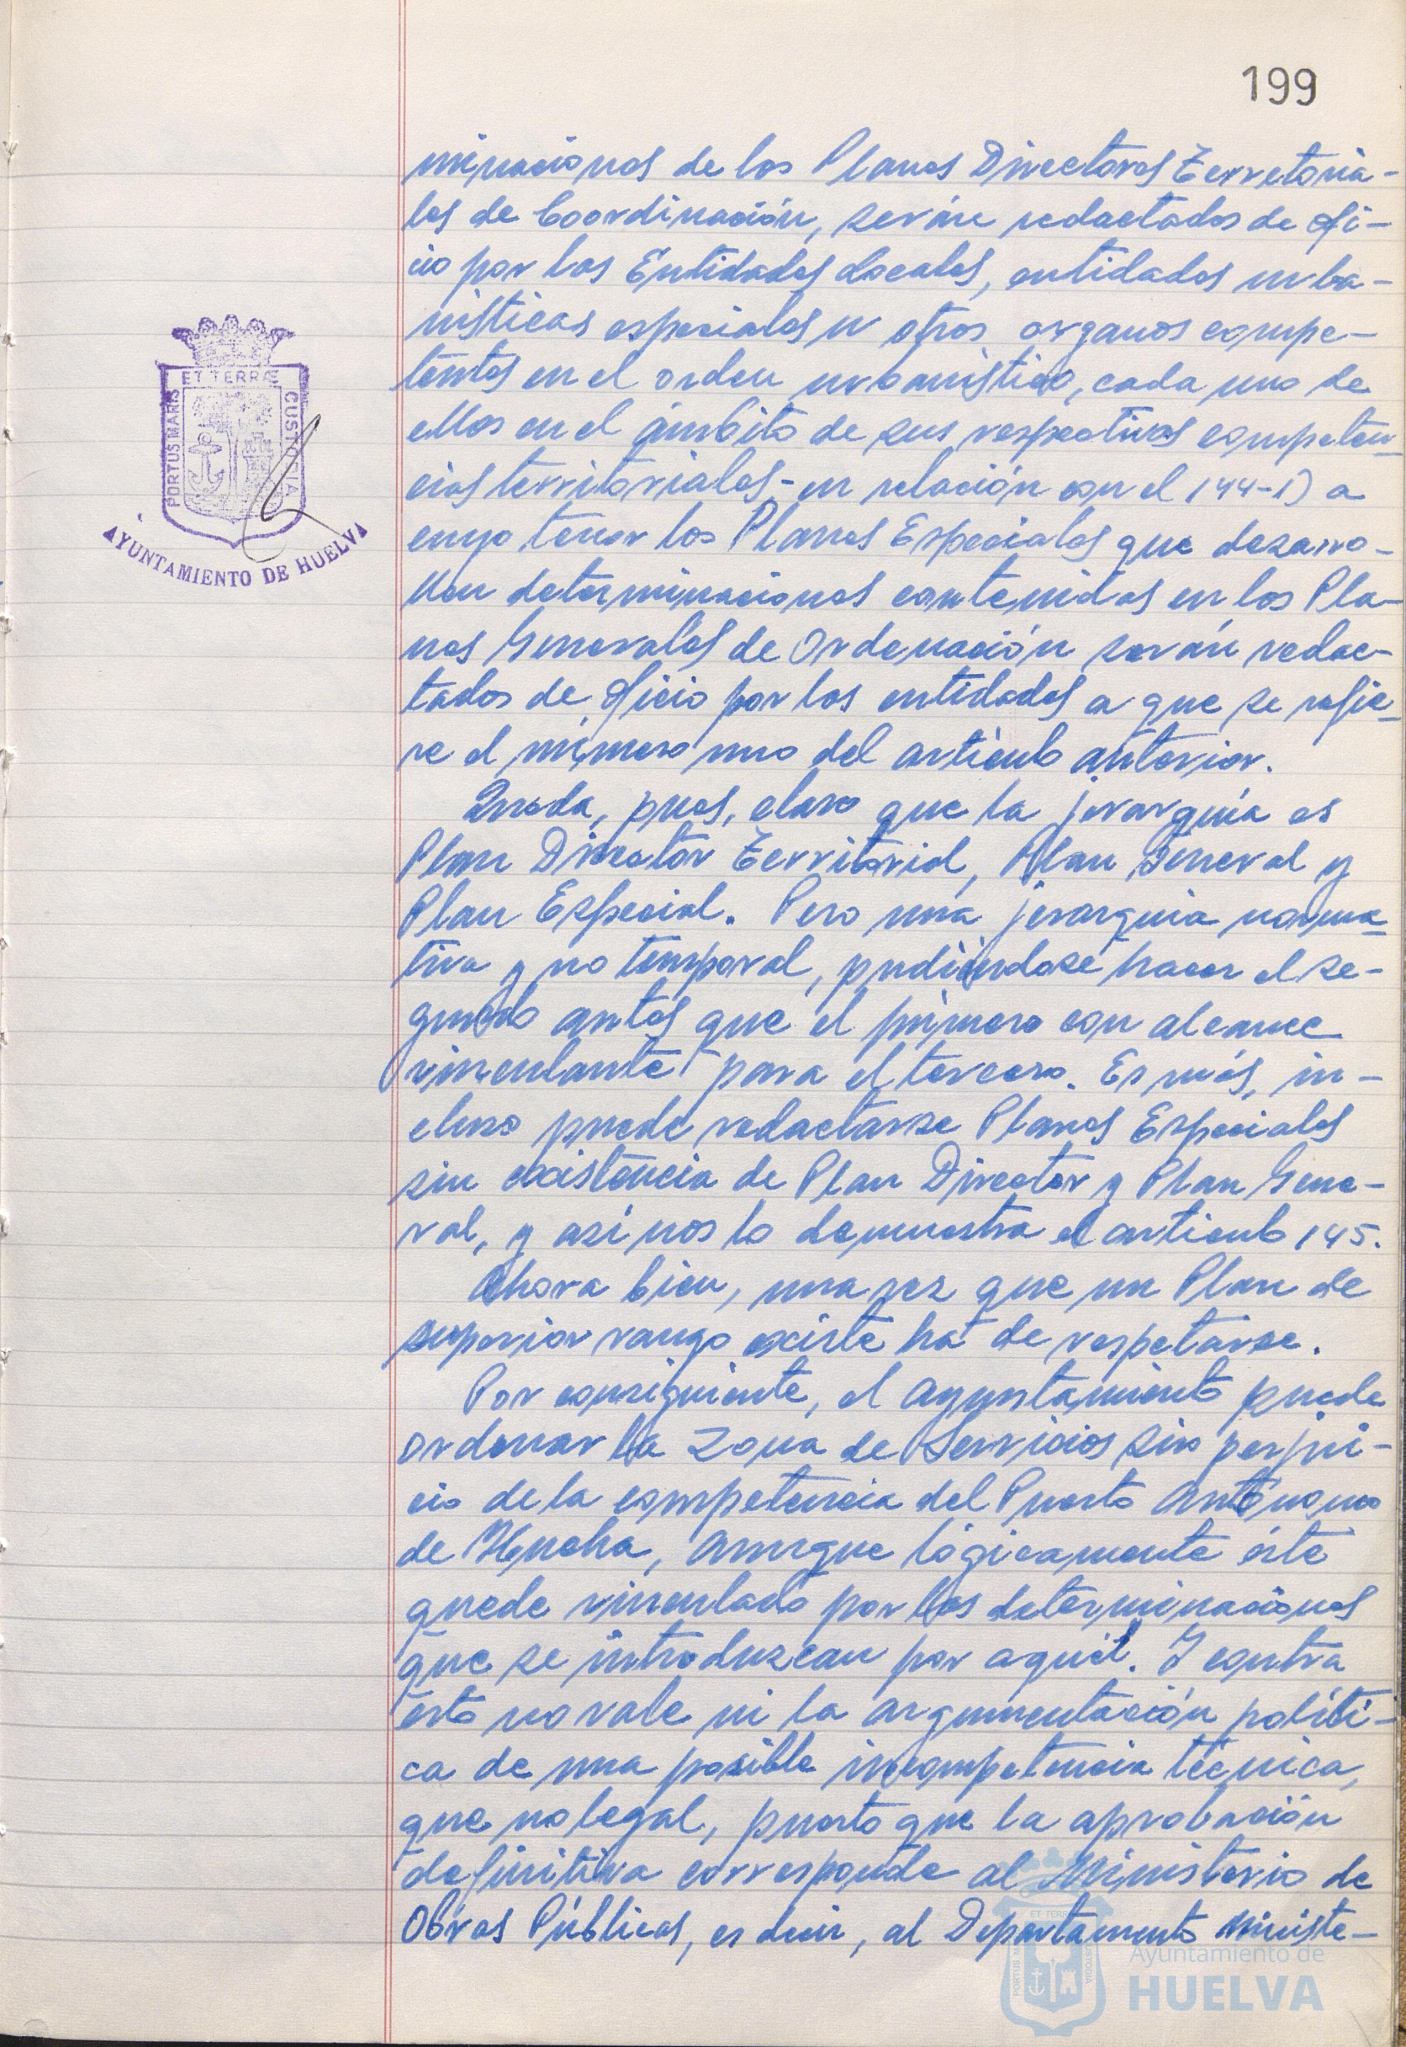 199
minaciones de los Planes Directores Territoria-
les de Coordinación, serán redactados de ofi-
cio por las Entidades Locales, entidades urba-
nísticas especiales u otros organos compe-
tentes en el orden urbanístico, cada uno de
ellos en el ámbito de sus respectivas competen-
cias territoriales - en relación con el 144-1) a
cuyo tenor los Planes Especiales que desarro-
llen determinaciones contenidas en los Pla-
nes Generales de Ordenación serán redac-
tados de oficio por las entidades a que se refie-
re el número uno del artículo anterior.
Queda, pues, claro que la jerarquía es
Plan Director Territorial, Plan General y
Plan Especial. Pero una jerarquía norma-
tiva y no temporal, pudiéndose hacer el se-
gundo antes que el primero con alcance
vinculante para el tercero. Es más, in-
cluso puede redactarse Planes Especiales
sin existencia de Plan Director y Plan Gene-
ral, y así nos lo demuestra el artículo 145.
Ahora bien, una vez que un Plan de
superior rango existe ha de respetarse.
Por consiguiente, el Ayuntamiento puede
ordenar la Zona de Servicios sin perjui-
cio de la competencia del Puerto Autónomo
de Huelva, aunque lógicamente éste
quede vinculado por las determinaciones
que se introduzcan por aquél. Y contra
esto no vale ni la argumentación políti-
ca de una posible incompetencia técnica,
que no legal, puesto que la aprobación
definitiva corresponde al Ministerio de
Obras Públicas, es decir, al Departamento Ministe-
PORTUS MARIS
ET TERRÆ
CUSTODIA
AYUNTAMIENTO DE HUELVA
Ayuntamiento de
HUELVA